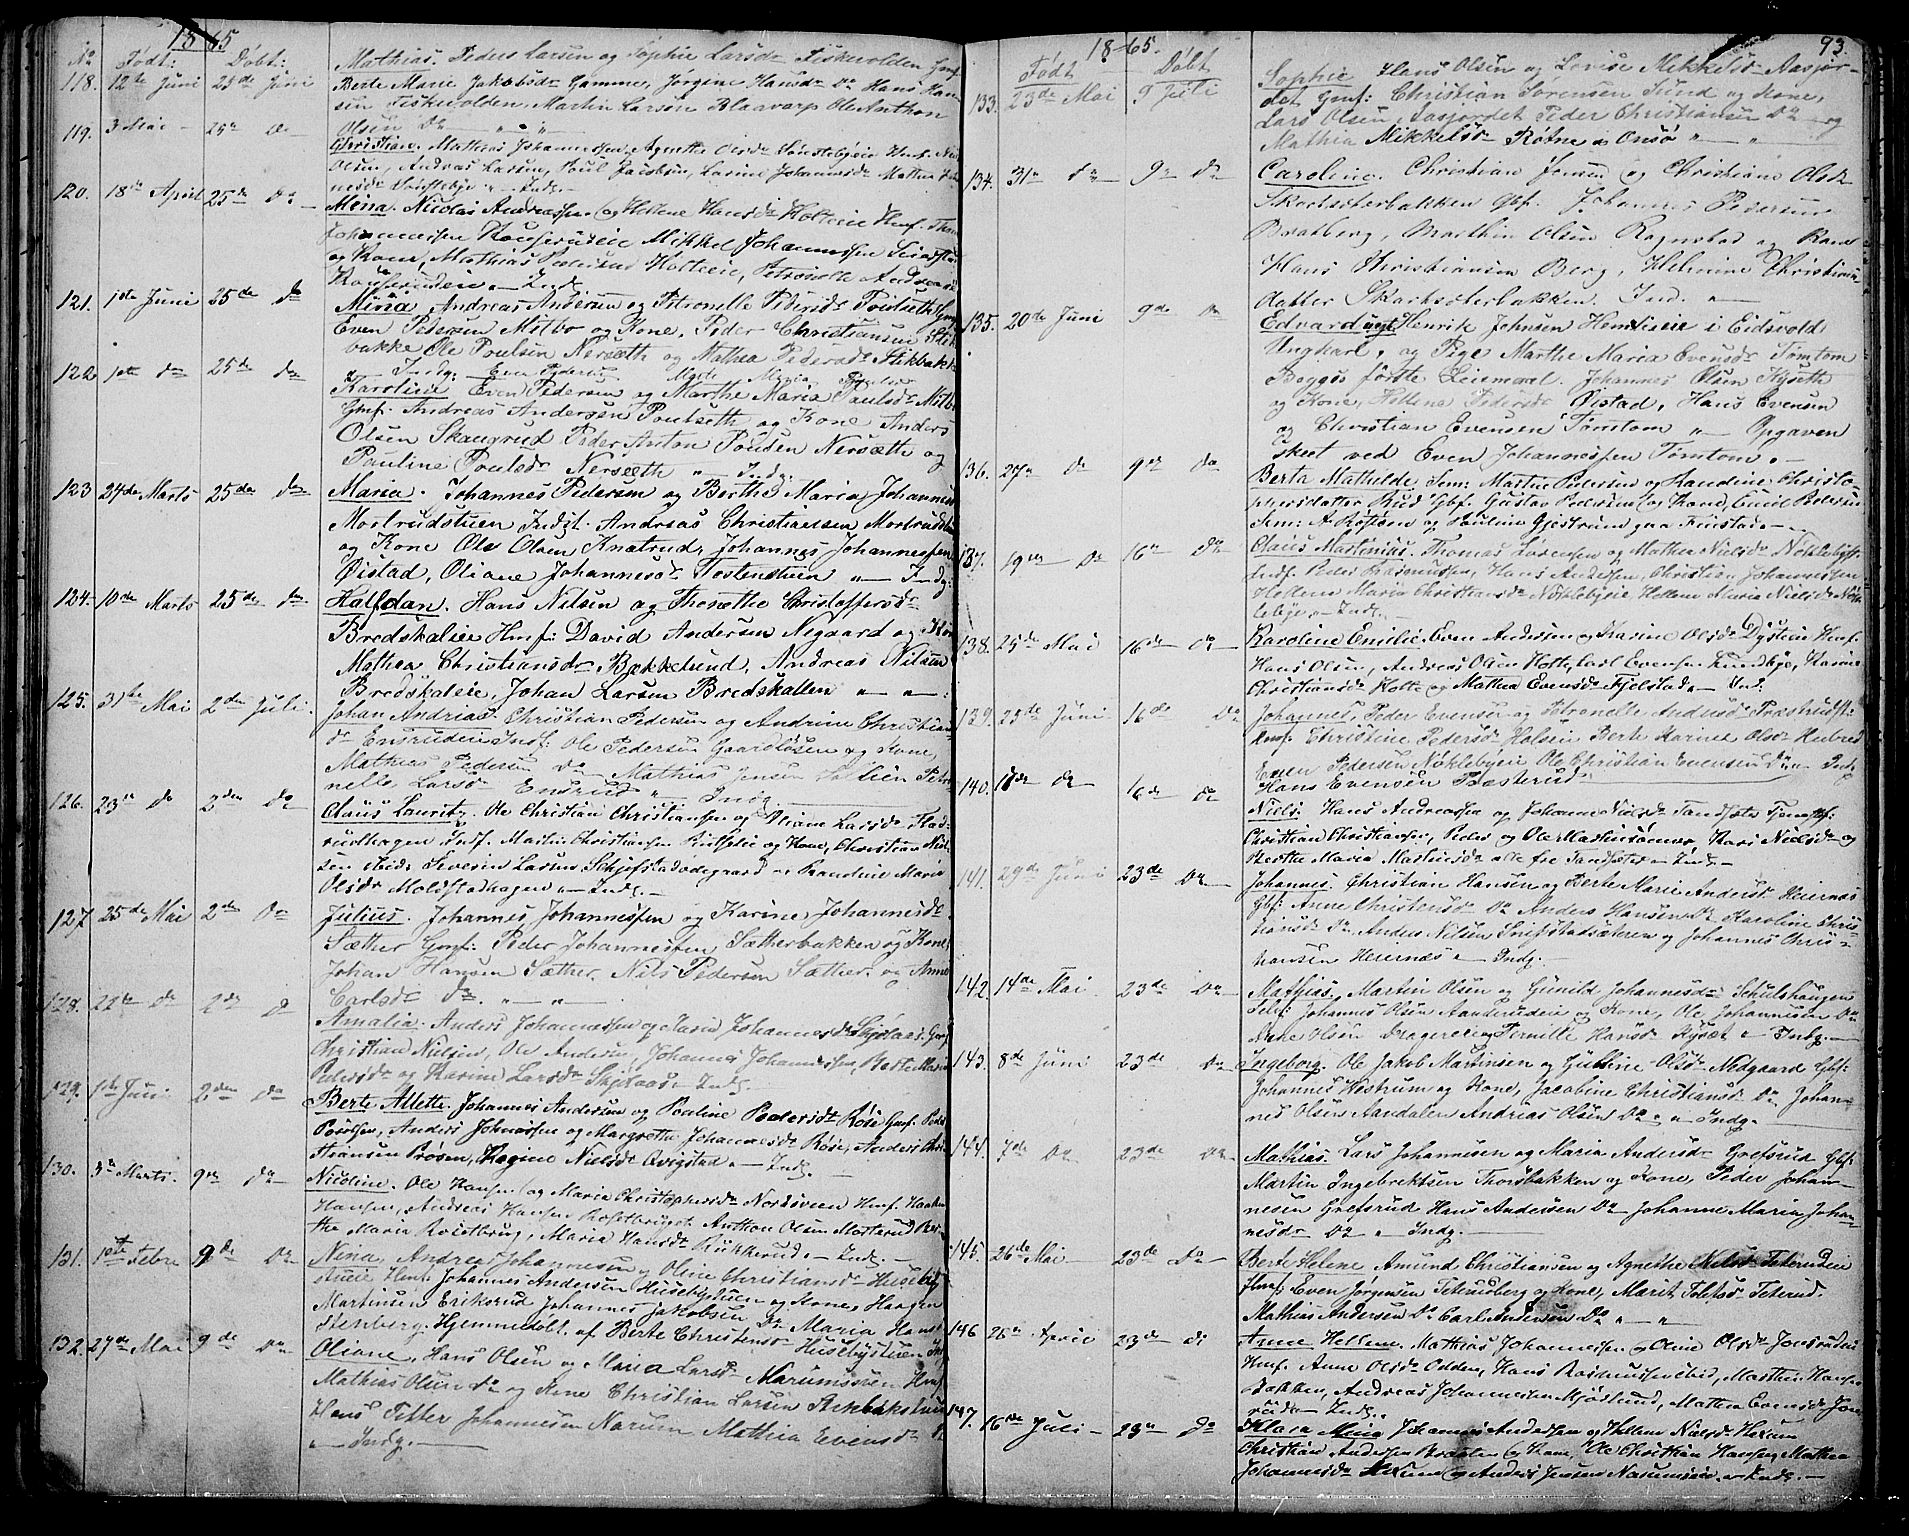 1865
No Født: Døbt:
Mathias. Peders Larsen og Sophie Larsdr Fiskevolden Gmf.
118. 12te Juni 25de Juni Berte Marie Jakobsdr Gamme, Jørgine Hansdr Do Hans Han-
sen Fiskevolden, Martin Larsen Blaavarp Ole Anthon
119. 3 Mai - 25de do Olsen Do " — "
Christian. Mathias Johannessen, Agnethe Olsdr
Olsen, Andreas Larsen, Poul Jacobsen, Larine Johannesdr Mathea
120. 18de April 25de Do - Indg. -
Mina. Nicolai Andreassen og Hellene Hansdr Holteie Hmf.
Johannessen Mikkel Johannessen
og Kone, Mathias Pedersen Holteeie, Petronelle Andreas
Indg
121. 1ste Juni 25de do Maria Andreas Andersen og Petronelle Pedersdr Poulseth Gmf
Even Pedersen Milbo og Kone, Peder Christiansen Stik-
bakke Ole Poulsen Nersæth og Mathea Pedersdr Stikbakke
122 1ste do 25de do " — Indg. Even Pedersen Marthe Maria
Karoline Even Pedersen og Marthe Maria Poulsdr Milbo
Gmf. Andreas Andersen Poulseth og Kone Anders
Olsen Skaugrud Peder Anton Poulsen Nersæth og
Pauline Poulsdr Nersæth " — Indg.
123 24de Marts 25de do Maria. Johannes Pedersen og Berthe Maria Johannes
Mortrudstuen Indgt. Andreas Christiansen Mortrudst
og Kone Ole Olsen Knatrud, Johannes Johannessen
Øistad, Oliane Johannesdr Tostensteien " — Indg.
124. 10de Marts 25de do Halfdan. Hans Nilsen og Thorethe Christoffersdr
Bredskaleie Hmf: David Andersen Negaard og Kone
Mathea Christiansdr Bækkelund, Andreas Nilsen
Bredskaleie, Johan Larsen Bredskallen " — " —
125. 31te Mai 2den Juli. Johan Andreas. Christian Pedersen og Andrine Christian
dr Ensrudeie Indf: Ole Pedersen Gaardløsen og Kone,
Mathias Pedersen Do Mathias Jensen Petro
nelle Larsdr Ensrud " — Indg
126. 23de do 2den do Claus Lauritz. Ole Christian Christiansen og Oliane Larsdr Flad-
rudhagen Indf. Martin Christiansen og Kone, Christian
sen Severin Larsen Schjefstadødegaard og Randine Marie
Olsdr Moldstadhagen " — Indg. —
127. 25de Mai 2den Do Julius. Johannes Johannessen og Karine Johannesdr
Sæther Gmf: Peder Johannessen Sætherbakken og Kone
Johan Hansen Sæther, Nils Pedersen Sæther og Anne
Carlsdr do. " — "
128. do 2den do Amalia. Anders Johannessen og Johannesdr Gmf
Christian Nielsen, Ole Andersen, Johannes Johannessen, Berte Marie
Pedersdr og Karine Larsdr Indg
129. 1ste Juni 2den do Berte Allette. Johannes Andersen og Pouline Pedersdr Røise Gmf. Peder
Poulsen, Anders Johnessen og Margrethe Johannesdr Røise, Anders Chri
stiansen Prøsen, Regine Nielsdr Qvigstad. " Indg. —
130. 3de Marts 9de do Nicoline. Ole Hansen og Maria Christophersdr Nordsveen Hmf. Haaken
Hansen, Andreas Hansen Anthon Olsen Mosterud Ber-
the Maria Maria Hansdr Rukkerud. " — Indg. —
131. 1ste Febr. 9de Do Nina. Andreas Johannessen og Oline Christiansdr Huseby
stueie Hmf. Johannes Andersen Husebystuen og Kone, Haagen
Martinsen Eriksrud Johannes Jakobsen Do Maria Hans
Stenberg. Hjemmedøbt af Berte Christensdr Husebystuen Indg
132. 27de Mai 9de Do Oliane. Hans Olsen og Maria Larsdr Narumssveen Hmf.
Mathias Olsen Do og Kone Christian Larsen
Hans Petter Johannesen Narum Mathea Evensdr
" — Indg. —
93.
1865.
Født Døbt
133. 23de Mai 9 Juli Sophie Hans Olsen og Lovise Mikkelsdr Aasjor-
det Gmf: Christian Sørensen Lund og Kone,
Lars Olsen Aasjordet Peder Christiansen Do og
Mathia Mikkelsdr Røtne i Onsø " — "
134. 31te do 9de do Caroline. Christian Jensen og Christiane Olsdr
Skachsæterbakken Gbf. Johannes Pedersen
Bratberg, Marthin Olsen Rognstad og Kone
Hans Christiansen Berg, Helmine Christians-
datter Skachsæterbakken. Ind. " —
135. 20de Juni 9de do Edvard uægt Henrik Johnsen Hemliseie i Eidsvold
Ungkarl, og Pige Marthe Maria Evensdr Tømtom
Begges første Leiemaal. Johannes Olsen Kyseth
og Kone, Hellene Pedersdr Øistad, Hans Evensen
og Christian Evensen Tømtom " — Opgaven
skeet ved Even Johannessen Tømtom. —
136. 27de do 9de do Berta Mathilde Sem: Martin Pedersen og Randine Christo-
phersdatter Rud Gbf. Gustav Pedersen og Kone, Emil Pedersen
Sem: A. Kofton og Paulina Gjestrum paa Finstad " —
137. 19de Do 16de Do Claus Martinius. Thomas Sørensen og Mathea Nielsdr Nøklebyst.
Indf. Peder Rasmussen, Hans Andersen, Christian Johannessen
Hellene Maria Christiansdr Nøklebyeie Hellene Maria Nielsdr Nøk
lebye " — Indg. —
138. 25de Mai 16de Do Karoline Emilie. Even Andersen og Karine Olsdr Dysteeie Hmf.
Hans Olsen, Andreas Olsen Holte, Carl Evensen Lundbye, Karine
Christiansdr Holte og Mathea Evensdr Fjelstad " — Ind.
139. 25de Juni 16de Do Johannes. Peder Evensen og Petronelle Andersdr Præstrudst.
Hmf. Christine Pedersdr Berte Karine Olsdr
Even Pedersen Nøklebyeie Ole Christian Evensen Do " Indg
140. 11te do 16de do Hans Evensen Præsterud
Niels. Hans Andreassen og Johanne Nielsdr Sandsæte
Christian Christiansen, Peder og Ole Mathiasønner, Kari Nielsdr og
Berthe Maria Mathiasdr alle fra Sandsæter " — Indg. —
141. 29de Juni 23de Do Johannes. Christian Hansen og Berte Marie Andersdr Heiernæs
Gbf: Anne Christensdr Do Anders Hansen Do Karoline Chris-
tiansdr Do Anders Nilsen Snipstadsæteren og Johannes Chris-
tiansen Heiernæs " — Indg.
142. 14de Mai 23de Do Mathias. Martin Olsen og Gunild Johannesdr Schulshaugen
Selvf. Johannes Olsen Aanderudeie og Kone, Ole Johannessen Do
Arne Olsen Dragereie og Pernille Hansdr Kysæt " Indg. —
143. 8de Juni 23de Do Ingeborg. Ole Jakob Martinsen og Gulline Olsdr Nedgaard Gbf:
Johannes Hostrum og Kone, Jacobine Christiansdr Do Johan-
nes Olsen Aandalen Andreas Olsen Do " — Indg. —
144. 7de Do 23de Do Mathias. Lars Johannesen og Maria Andersdr Grefsrud Gbf:
Martin Ingebrektsen Thorsbakken og Kone, Peder Johan-
nesen Grefsrud Hans Andersen Do Johanne Maria Johan-
nesdr Do " Indg. —
145. 26de Mai 23de Do Berte Helene Amund Christiansen og Agnethe Nilsdr Teterudeie
Hmf: Even Jørgensen Teterudberg og Kone, Marit Tolefsdr Teterud.
Mathias Andersen Do Carl Andersen Do " — "
146 26de April 23de do Anne Hellene. Mathias Johannessen og Oline Olsdr
Hmf. Anne Olsdr Odden, Hans Rasmussen ibid, Marthin Hansen
Bakken, Andreas Johannessen Mjøslund, Mathea Evensdr
" Indg.
147. 16de Juli - 23de do Klara Mina Johannes Andersen og Hellene Nielsdr Hexum
Christian Andersen og Kone, Ole Christian Hansen, Mathea
Johannesdr Hexum og Anders Jensen Narumseie " Indg. —